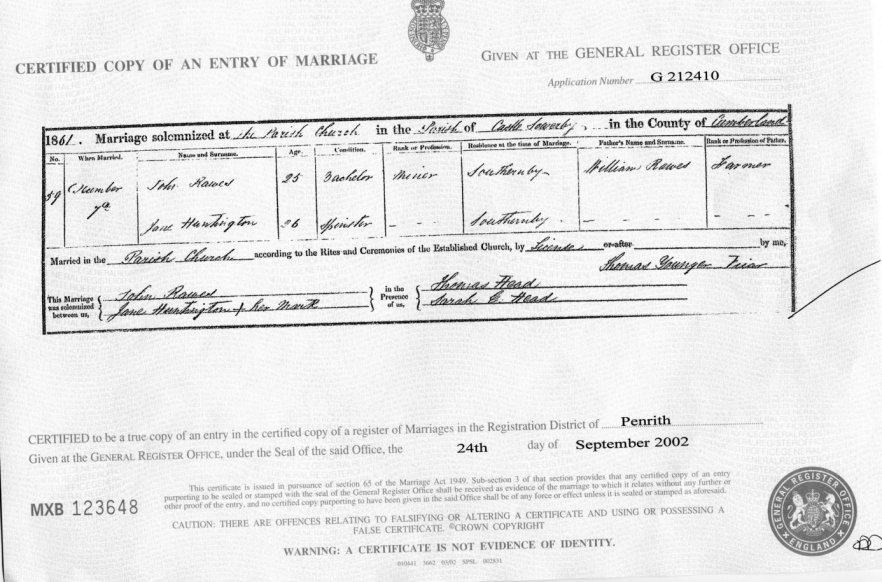 CERTIFIED COPY OF AN ENTRY OF MARRIAGE
GIVEN AT THE GENERAL REGISTER OFFICE
Application Number G 212410
1861. Marriage solemnized at the Parish Church in the Parish of Castle Sowerby in the County of Cumberland
No. When Married. Name and Surname. Age. Condition. Rank or Profession. Residence at the time of Marriage. Father's Name and Surname. Rank or Profession of Father.
59 John Rawes 25 Bachelor Miner Southernby William Rawes Farmer
Jane Huntington 26 Spinster - - - Southernby - - - - - -
Married in the Parish Church according to the Rites and Ceremonies of the Established Church, by License or after by me,
Thomas Younger
This Marriage was solemnized between us, John Rawes
Jane Huntington x her mark
in the Presence of us, Thomas Head
Sarah E. Head
CERTIFIED to be a true copy of an entry in the certified copy of a register of Marriages in the Registration District of Penrith
Given at the GENERAL REGISTER OFFICE, under the Seal of the said Office, the 24th day of September 2002
This certificate is issued in pursuance of section 65 of the Marriage Act 1949. Sub-section 3 of that section provides that any certified copy of an entry
purporting to be sealed or stamped with the seal of the General Register Office shall be received as evidence of the marriage to which it relates without any further or
other proof of the entry, and no certified copy purporting to have been given in the said Office shall be of any force or effect unless it is sealed or stamped as aforesaid.
MXB 123648
CAUTION: THERE ARE OFFENCES RELATING TO FALSIFYING OR ALTERING A CERTIFICATE AND USING OR POSSESSING A
FALSE CERTIFICATE. ©CROWN COPYRIGHT
WARNING: A CERTIFICATE IS NOT EVIDENCE OF IDENTITY.
GENERAL REGISTER OFFICE
ENGLAND